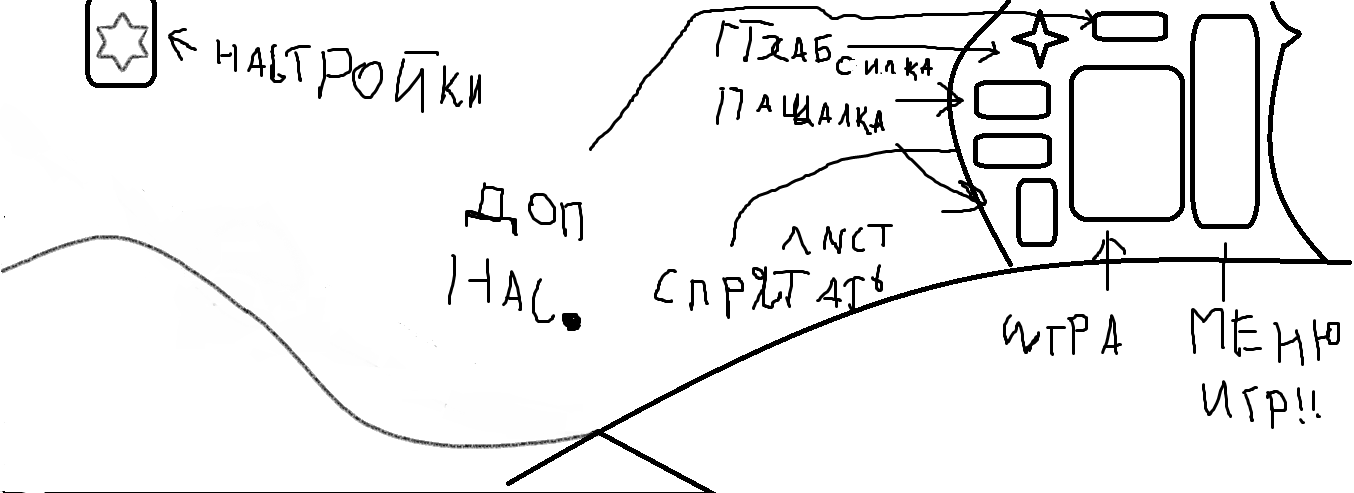 НАСТРОЙКИ
ГТХАБ СИЛКА
ПАЩАЛКА
ДОП
НАС.
ЛИСТ
СПРЯТАТЬ
ИГРА
МЕНЮ
ИГР!!